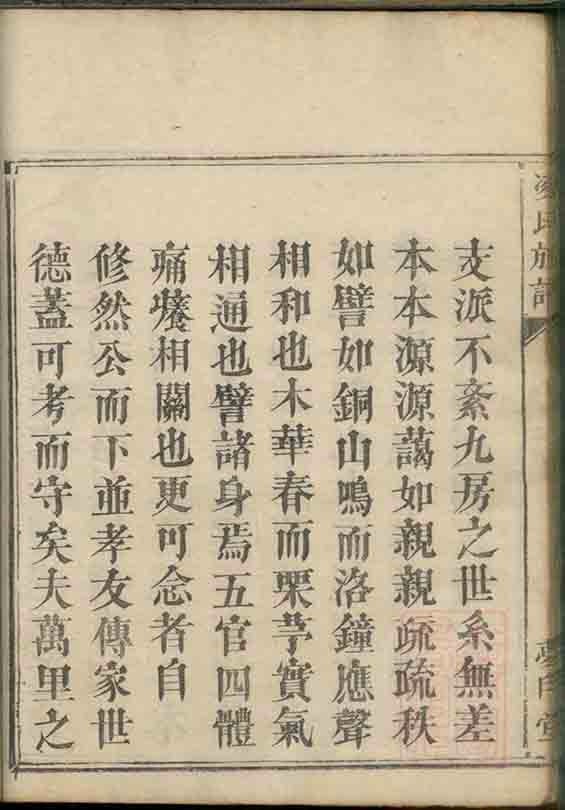 支派不紊九房之世系無差
本本源源藹如親親疏疏秩
如譬如銅山鳴而洛鐘應聲
相和也木華春而栗芧實氣
相通也譬諸身焉五官四體
痛癢相關也更可念者自
修然公而下並孝友傳家世
德蓋可考而守矣夫萬里之